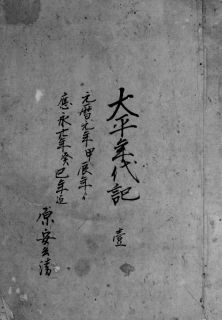 太平年代記 壹
元暦元年甲辰年ゟ
應永廿年癸巳年迠
原安公蔵